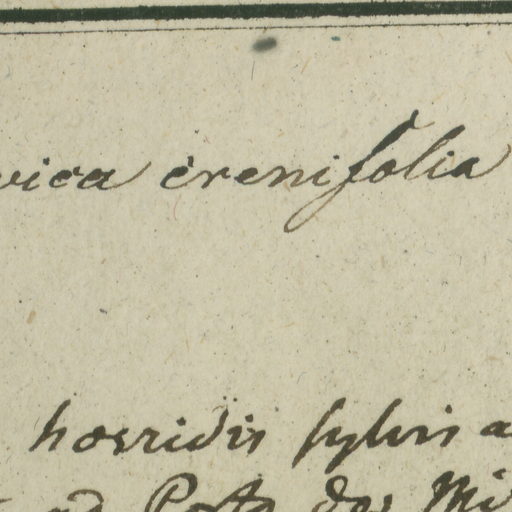 vica crenifolia
horridis sylvis a
ad Porto dos Mi